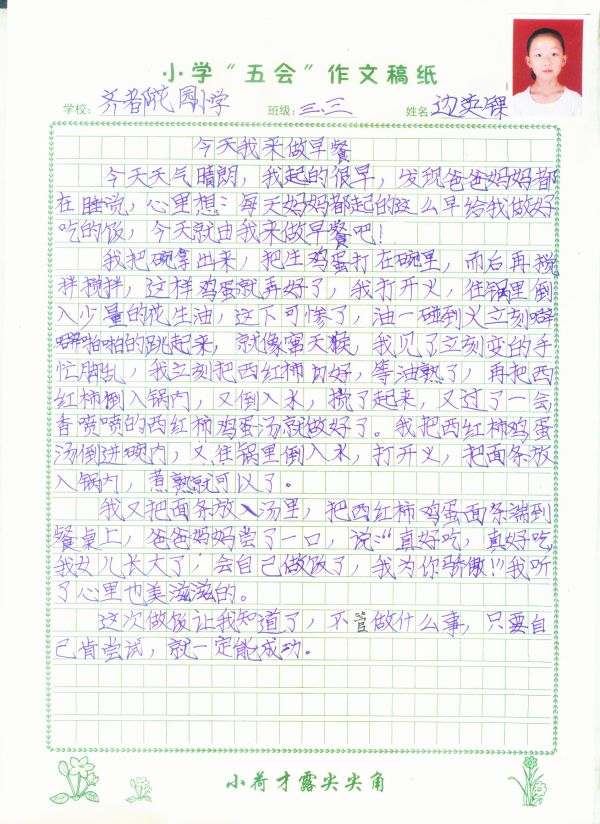 小学“五会”作文稿纸
学校: 齐都花园小学 班级: 三.三 姓名 边奕锞
今天我来做早餐
今天天气晴朗，我起的很早，发现爸爸妈妈都
在睡觉，心里想：每天妈妈都起的这么早给我做好
吃的饭，今天就由我来做早餐吧！
我把碗拿出来，把生鸡蛋打在碗里，而后再搅
拌搅拌，这样鸡蛋就弄好了，我打开火，往锅里倒
入少量的花生油，这下可惨了，油一碰到火立刻噼
噼啪啪的跳起来，就像窜天猴，我见了立刻变的手
忙脚乱，我立刻把西红柿切好，等油熟了，再把西
红柿倒入锅内，又倒入水，搅了起来，又过了一会
香喷喷的西红柿鸡蛋汤就做好了。我把西红柿鸡蛋
汤倒进碗内，又往锅里倒入水，打开火，把面条放
入锅内，煮熟就可以了。
我又把面条放入汤里，把西红柿鸡蛋面条端到
餐桌上，爸爸妈妈尝了一口，说：“真好吃，真好吃
我女儿长大了，会自己做饭了，我为你骄傲！”我听
了心里也美滋滋的。
这次做饭让我知道了，不管做什么事，只要自
己肯尝试，就一定能成功。
小荷才露尖尖角